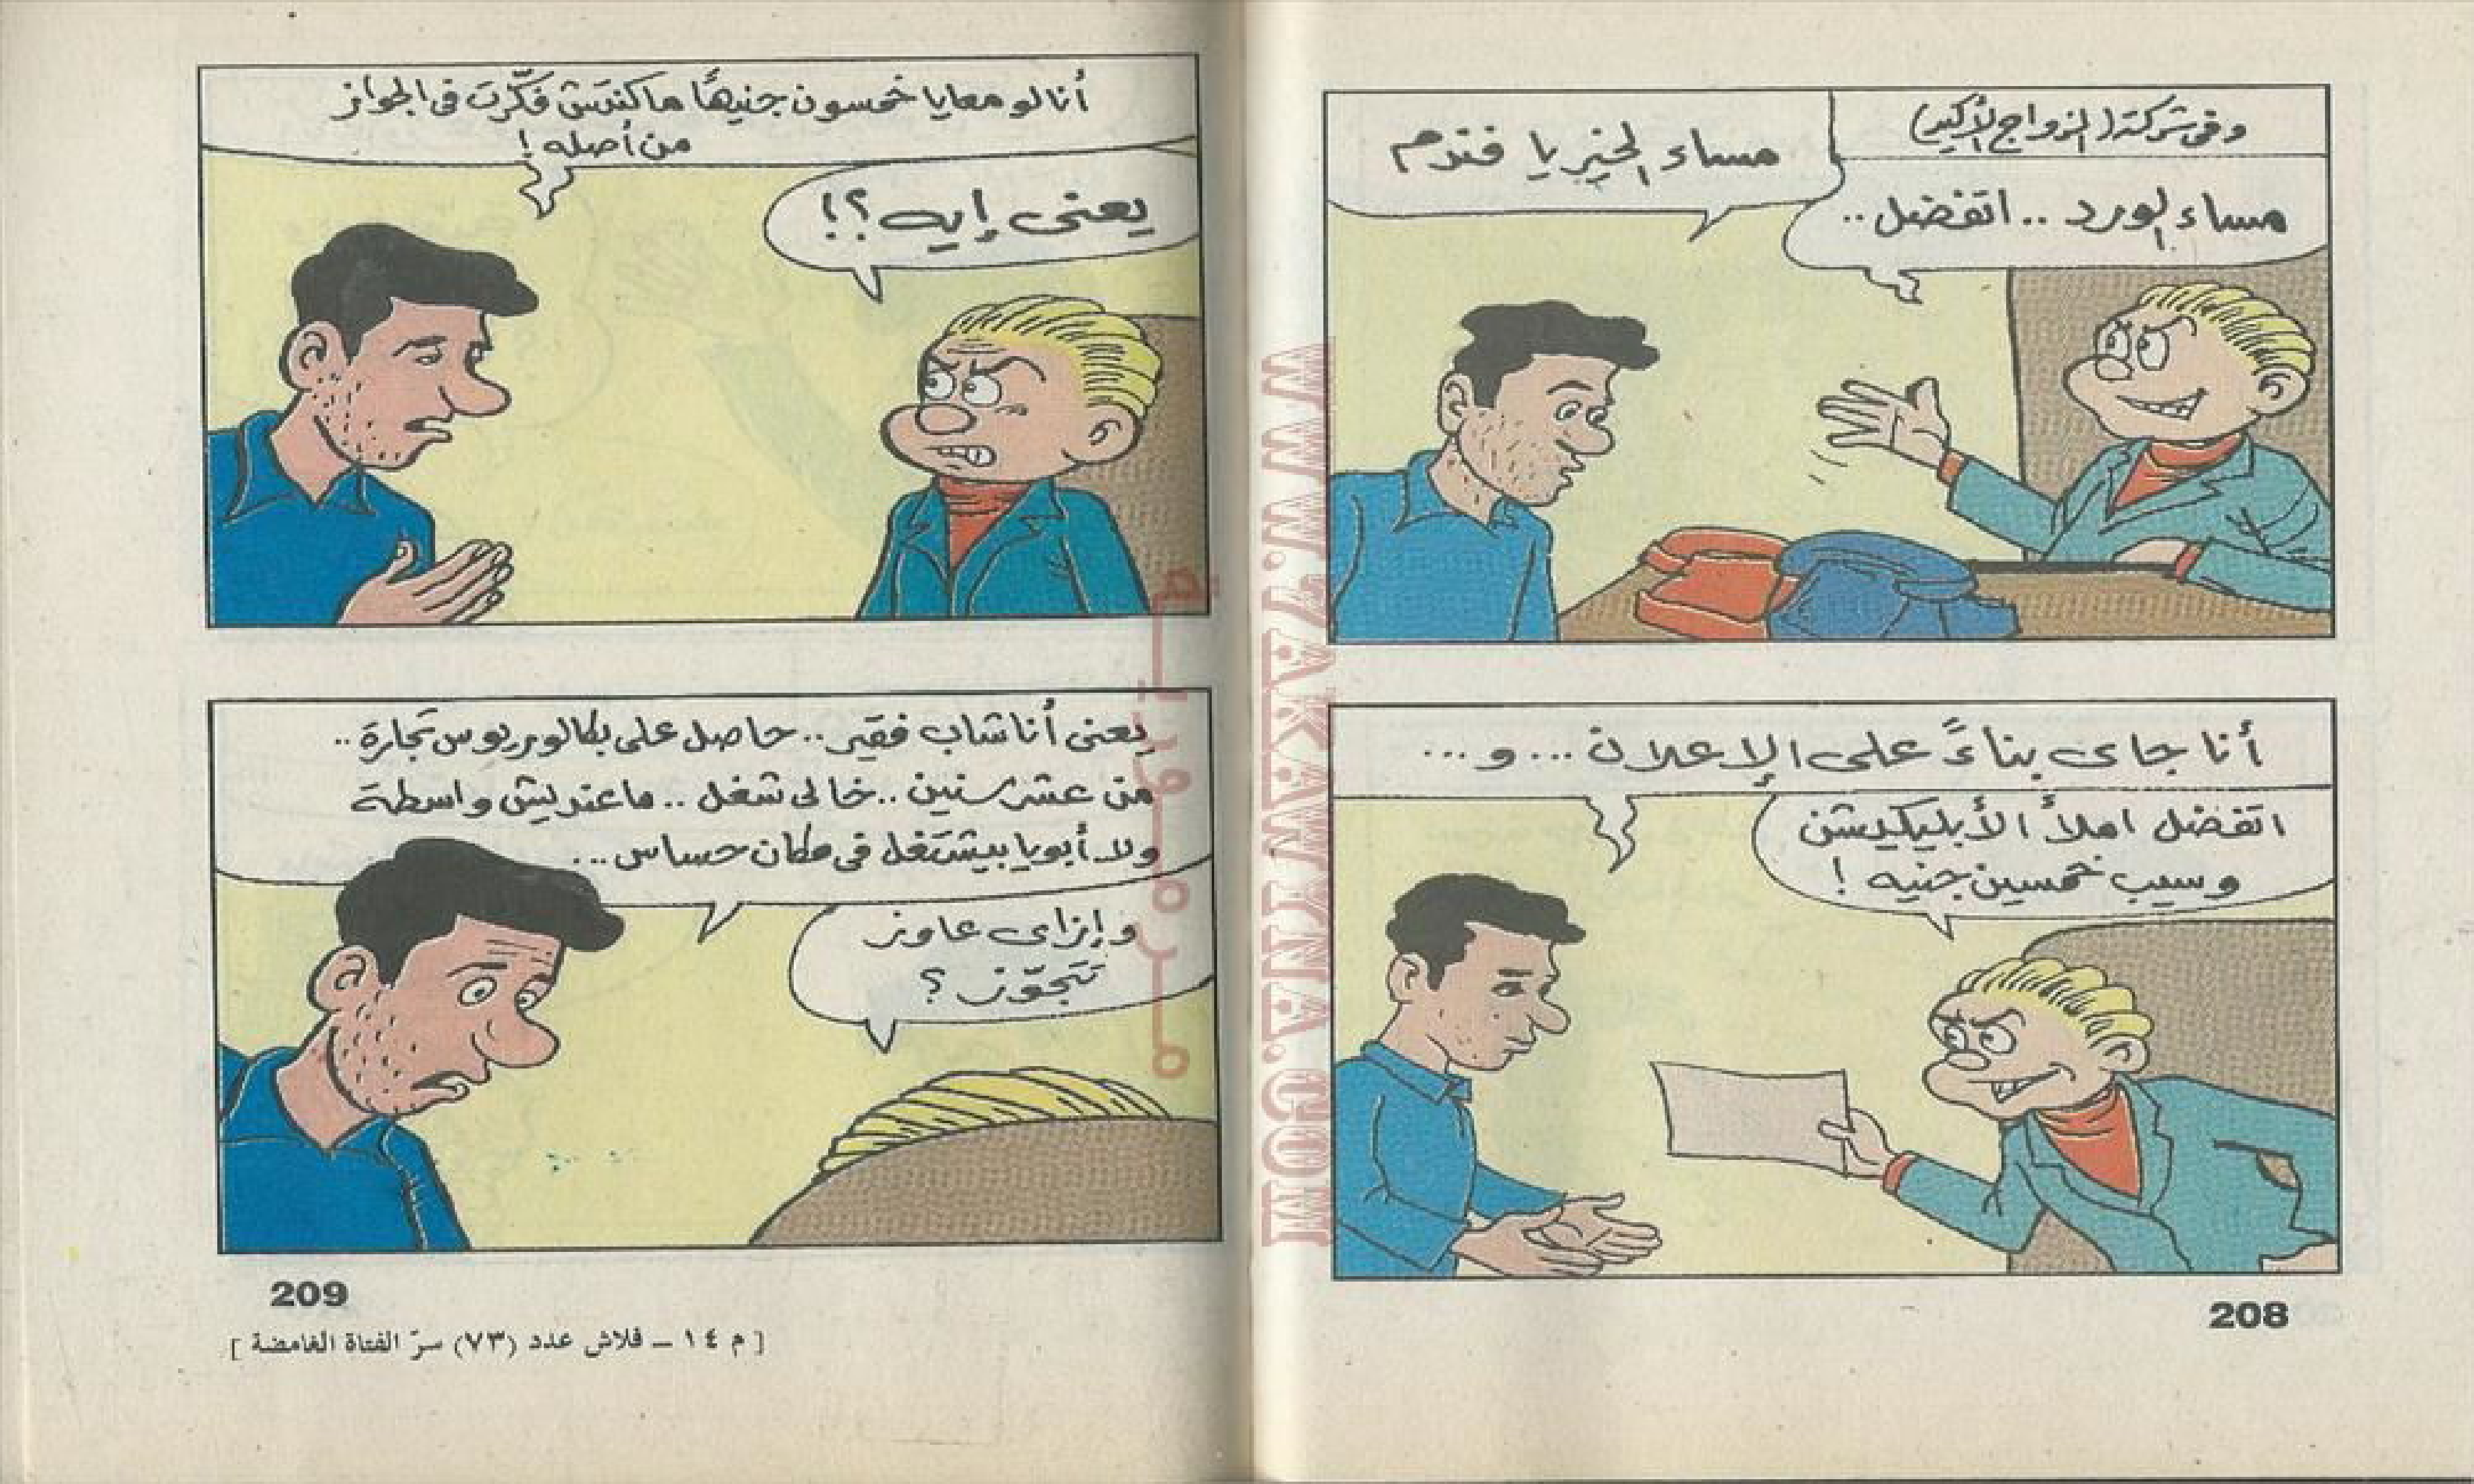 وفى شركة (الزواج الأكيد)
مساء الخير يا فندم
مساء الورد .. اتفضل ..
أنا جاى بناءً على الإعلان ... و ...
اتفضل املأ الأبليكيشن
وسيب خمسين جنيه !
208
أنا لو معايا خمسون جنيهًا ماكنتش فكّرت فى الجواز
من أصله !
يعنى إيه ؟!
يعنى أنا شاب فقير .. حاصل على بكالوريوس تجارة ..
من عشر سنين .. خالى شغل .. ماعنديش واسطة
ولا أبويا بيشتغل فى مكان حساس ...
وإزاى عاوز
تتجوّز ؟
209
[ م ١٤ ــ فلاش عدد (٧٣) سرّ الفتاة الغامضة ]